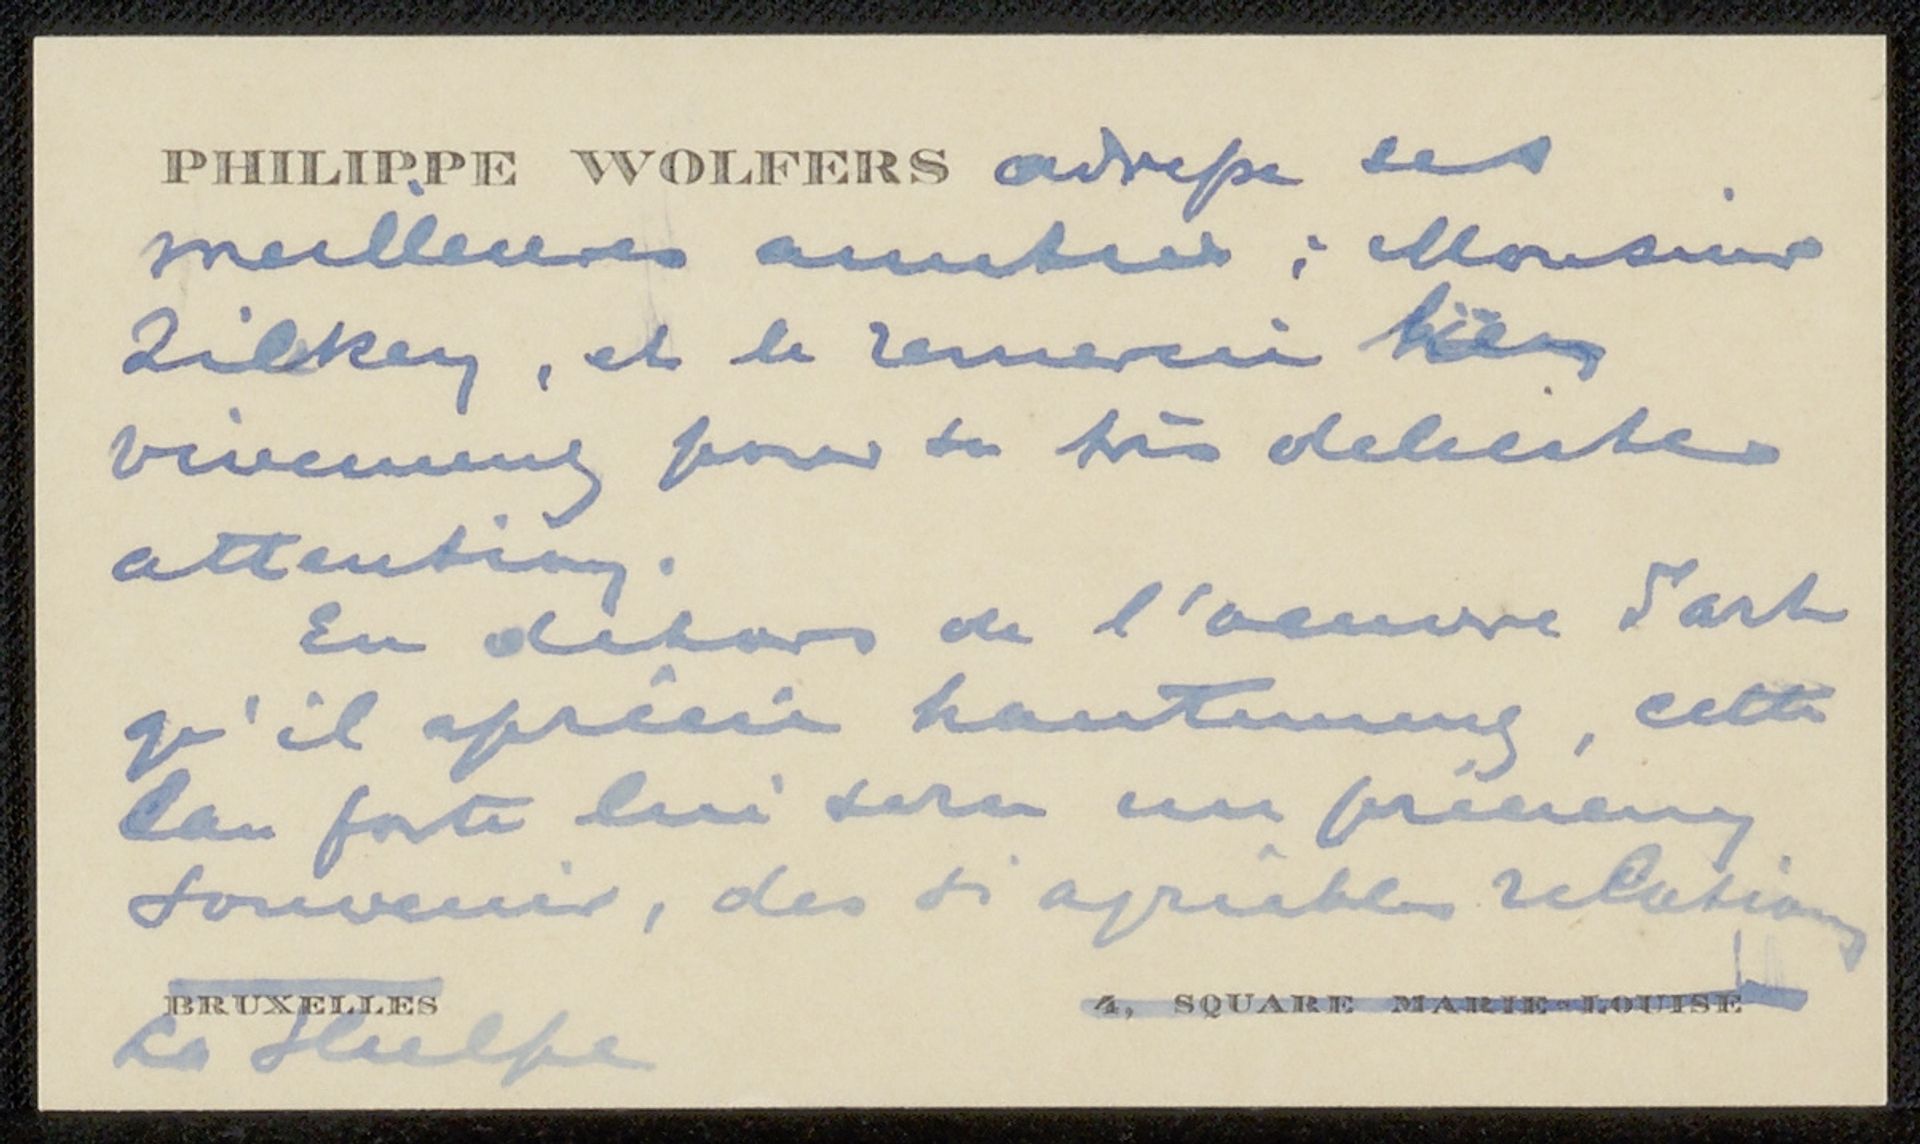 PHILIPPE WOLFERS adresse ses
meilleures amitiés à Monsieur
Zilken, et le remercie bien
vivement pour sa très delicate
attention.
En dehors de l'oeuvre d'art
qu'il aprécie hautement, cette
Eau forte lui sera un précieux
souvenir, des si agréables relations
BRUXELLES 4, SQUARE MARIE-LOUISE
La Hulpe